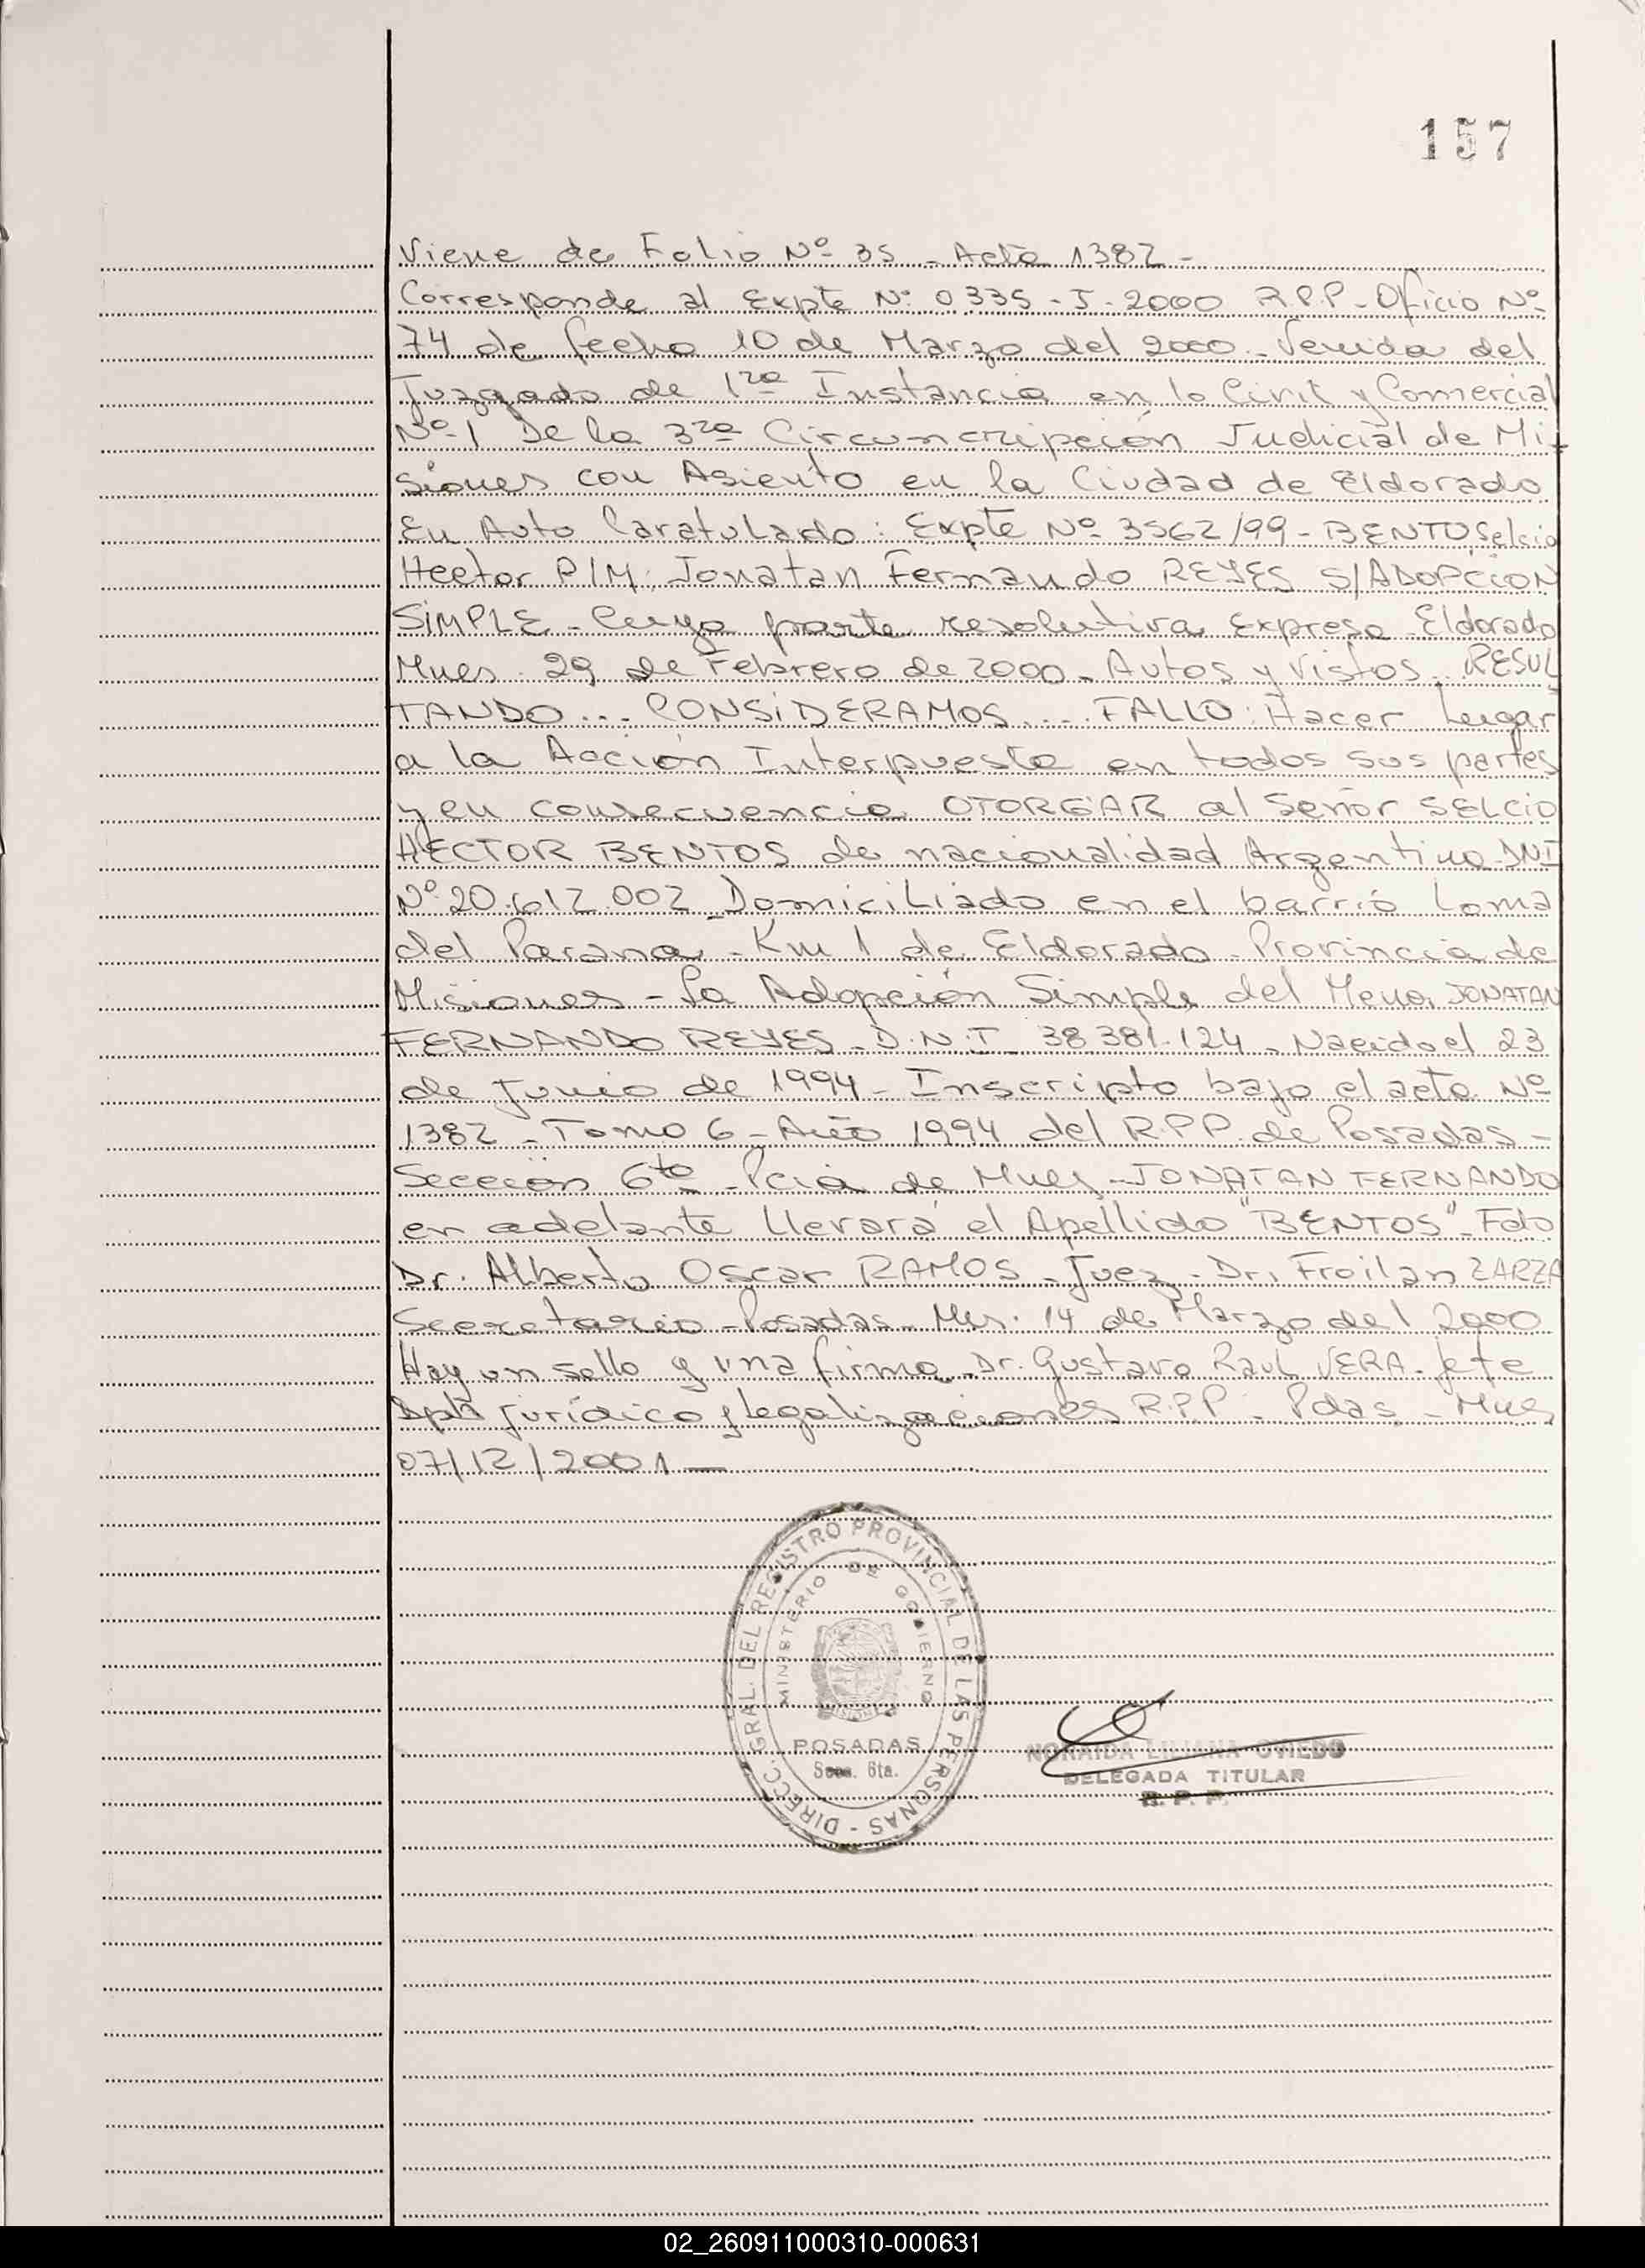 157
Viene de Folio Nº 35 - Acta 1382 -
Corresponde al Expte Nº 0335 - J - 2000 R.P.P - Oficio Nº
74 de fecha 10 de Marzo del 2000 - Venida del
Juzgado de 1ra Instancia en lo Civil y Comercial
Nº 1 De la 3ra Circuncripción Judicial de Mi-
siones con Asiento en la Ciudad de Eldorado
En Auto Caratulado: Expte Nº 3562/99 - BENTO Selcio
Hector P/M: Jonatan Fernando REYES S/ADOPCION
SIMPLE - Cuya parte resolutiva Expresa - Eldorado
Mnes. 29 de Febrero de 2000 - Autos y Vistos. RESUL
TANDO... CONSIDERAMOS... FALLO: Hacer Lugar
a la Acción Interpuesta en todos sus partes
y en consecuencia OTORGAR al Señor SELCIO
HECTOR BENTOS de nacionalidad Argentina - DNI
Nº 20.612.002 - Domiciliado en el barrio Loma
del Parana - Km 1 de Eldorado - Provincia de
Misiones - La Adopción Simple del Menor JONATAN
FERNANDO REYES - D.N.I - 38.381.124 - Nacido el 23
de Junio de 1994 - Inscripto bajo el acta Nº
1382 - Tomo 6 - Año 1994 del R.P.P. de Posadas -
Sección 6ta - Pcia de Mnes - JONATAN FERNANDO
en adelante llevará el Apellido "BENTOS" - Fdo
Dr. Alberto Oscar RAMOS - Juez - Dr. Froilan ZARZA
Secretario - Posadas - Mes. 14 de Marzo del 2000
Hay un sello y una firma - Dr. Gustavo Raul VERA - Jefe
Dpto Jurídico y Legalizaciones R.P.P - Pdas - Mnes
07/12/2001 -
DIRECC. GRAL. DEL REGISTRO PROVINCIAL DE LAS PERSONAS -
MINISTERIO DE GOBIERNO
POSADAS
Secc. 6ta.
NORAIDA LILIANA OVIEDO
DELEGADA TITULAR
R. P. P.
02_260911000310-000631